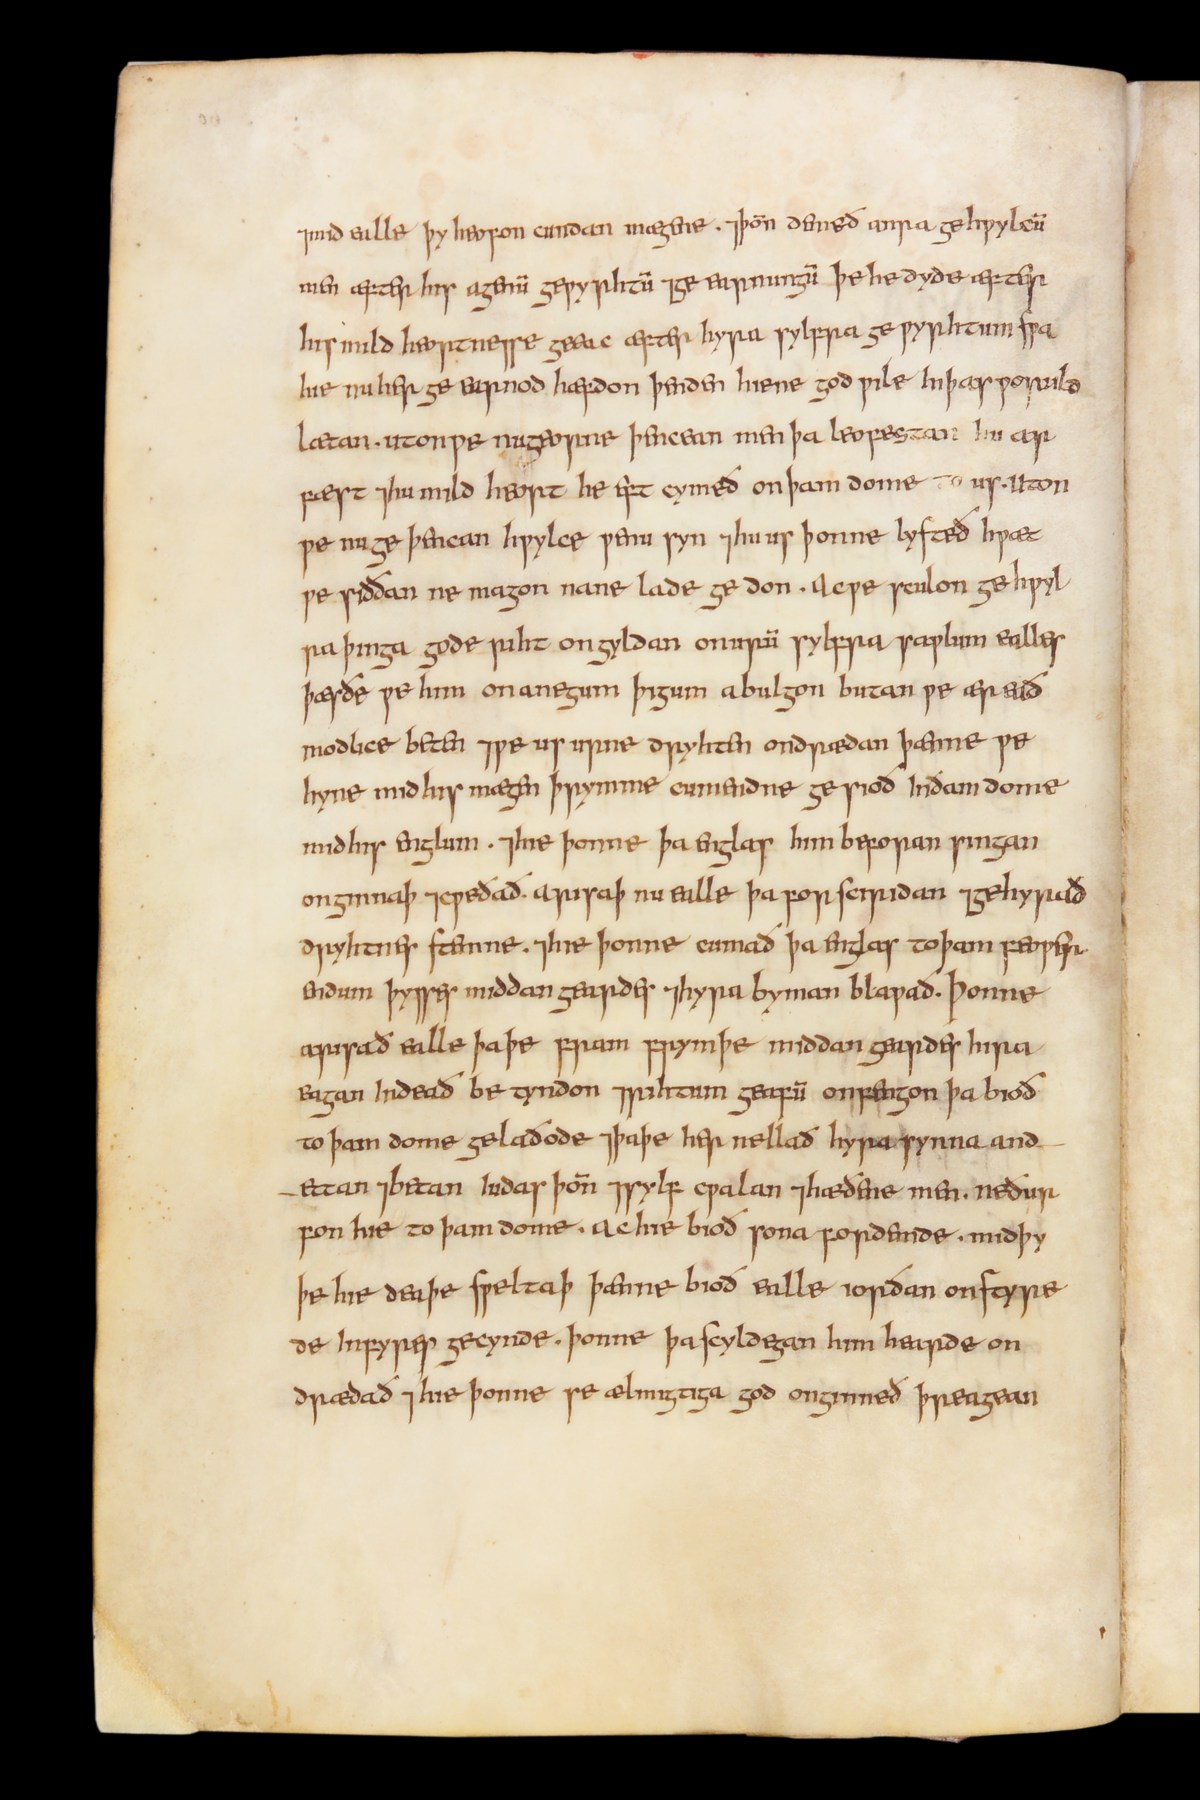 ⁊mid ealle þy heofon cundan mægene. ⁊þoň demeð anra gehƿylcū
men æfter his agenū geƿyrhtū ⁊ge earnungū þe he dyde æfter
his mild heortnesse geeac æfter hyra sylfra ge ƿyrhtum sƿa
hie nu her ge earnod hæfdon þenden hiene god ƿile in þas ƿoruld
lætan. uton ƿe nu georne þencean men þa leofestan hu ar
fæst ⁊hu mild heort he eft cymeð on þam dome to us. Uton
ƿe nu ge þencan hƿylce ƿenu syn ⁊hu us þonne lysteð hƿæt
ƿe siððan ne magon nane lade ge don. Ac ƿe sculon ge hƿyl
ra þinga gode riht on gyldan on urū sylfra saƿlum ealles
þæs ðe ƿe him on anegum þigum abulgon butan ƿe ær eað
modlice beten ⁊ƿe us urne dryhten ondrædan þænne ƿe
hyne mid his mægen þrymme cumendne ge sioð in ðam dome
mid his englum. ⁊hie þonne þa englas him beforan singan
onginnaþ ⁊cƿeðað. arisaþ nu ealle þa forð sciridan ⁊gehyrað
dryhtnes stemne. ⁊hie þonne cumað þa englas to þam feoƿer
endum þysses middan geardes ⁊hyra byman blaƿað. Þonne
arisað ealle þa þe fram frymþe middan geardes hira
eagan in deað be tyndon ⁊rihtum geafū onfengon þa bioð
to þam dome gelaðode ⁊þa þe her nellað hyra synna and
ettan ⁊betan iudas þoň ⁊sylf cƿalan ⁊hæðene men. ne ður
fon hie to þam dome. Ac hie bioð sona fordemde. mid þy
þe hie deaþe sƿeltaþ þænne bioð ealle iorðan onstyre
de in fyres gecynde. þonne þa scyldegan him hearde on
drædað ⁊hie þonne se ælmigtiga god onginneð þreagean